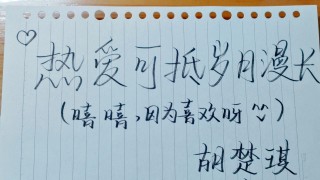 热爱可抵岁月漫长
(嘻嘻,因为喜欢呀 ^^)
胡楚琪